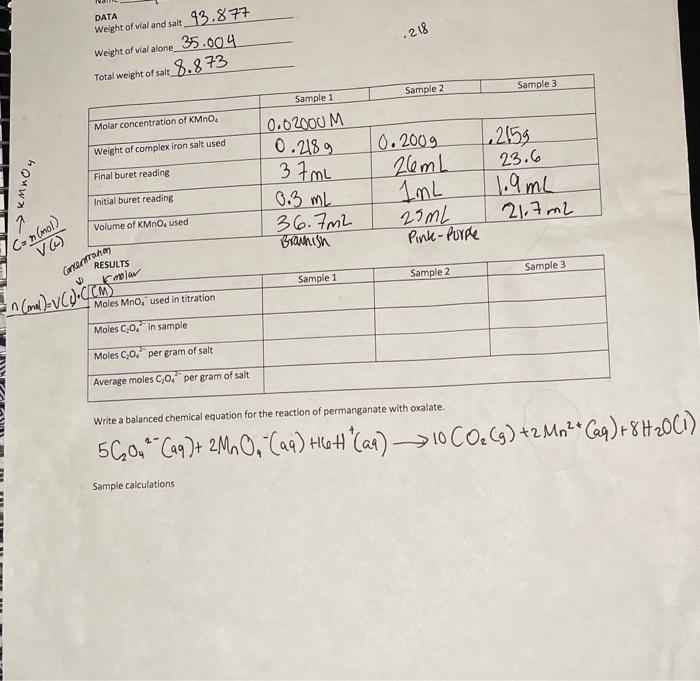 DATA
Weight of vial and salt 93.877
.218
Weight of vial alone 35.004
Total weight of salt 8.873
Sample 1 Sample 2 Sample 3
Molar concentration of KMnO₄ 0.02000 M
Weight of complex iron salt used 0.218 g 0.200g .215g
Final buret reading 37mL 26mL 23.6
Initial buret reading 0.3 mL 1mL 1.9mL
Volume of KMnO₄ used 36.7mL 25mL 21.7mL
Brownish Pink-Purple
→ KMnO4
C = n(mol) / V(L)
concentration
RESULTS
molar
n(mol)=V(L)·C(M)
Sample 1 Sample 2 Sample 3
Moles MnO₄⁻ used in titration
Moles C₂O₄²⁻ in sample
Moles C₂O₄²⁻ per gram of salt
Average moles C₂O₄²⁻ per gram of salt
Write a balanced chemical equation for the reaction of permanganate with oxalate.
5C₂O₄²⁻(aq) + 2MnO₄⁻(aq) + 16H⁺(aq) → 10CO₂(g) + 2Mn²⁺(aq) + 8H₂O(l)
Sample calculations